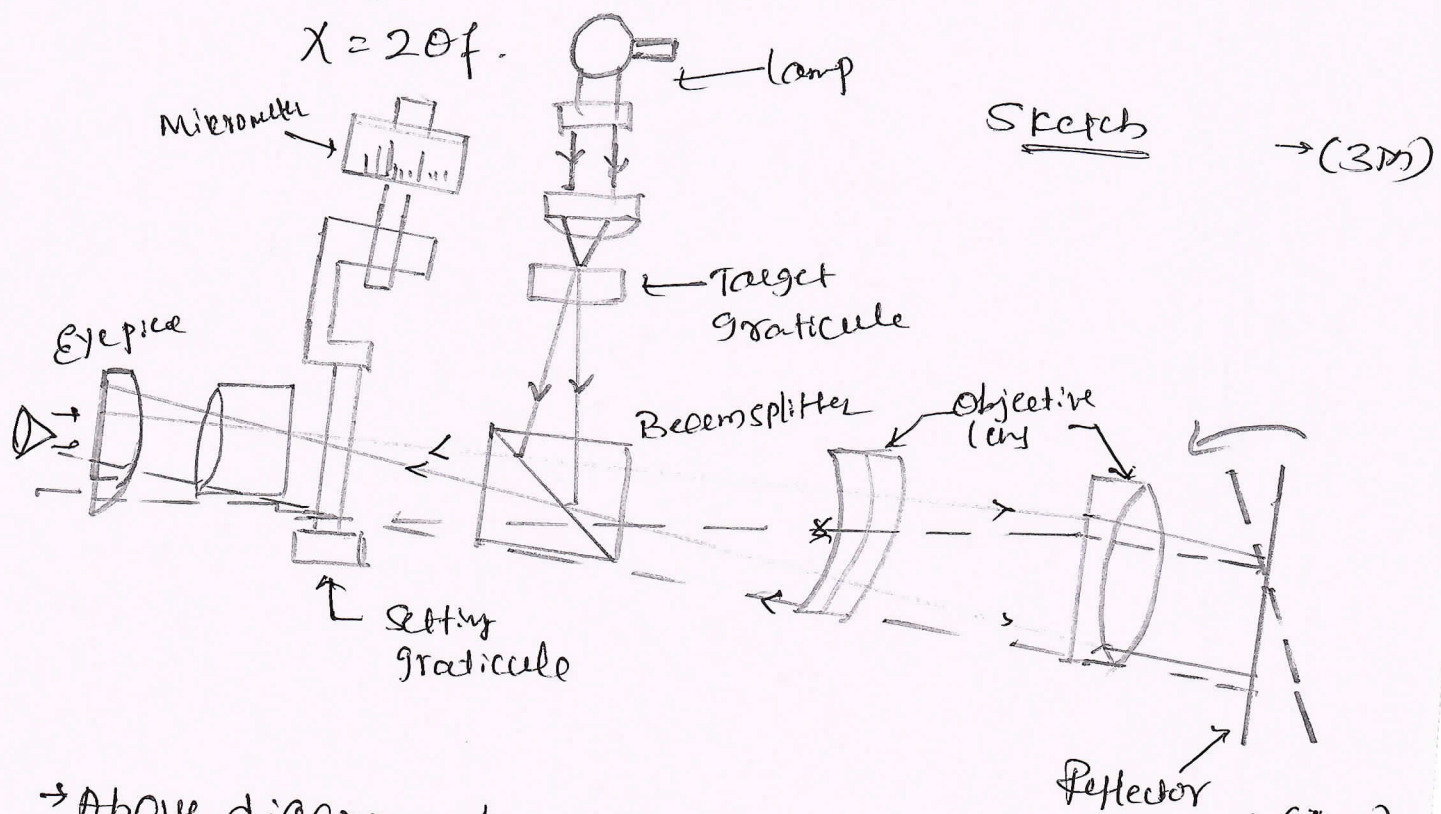 X = 2θf.
lamp
Micrometer
Sketch → (3M)
Target
graticule
Eyepiece
Beamsplitter
Objective
lens
Setting
graticule
Reflector
→ Above diagram